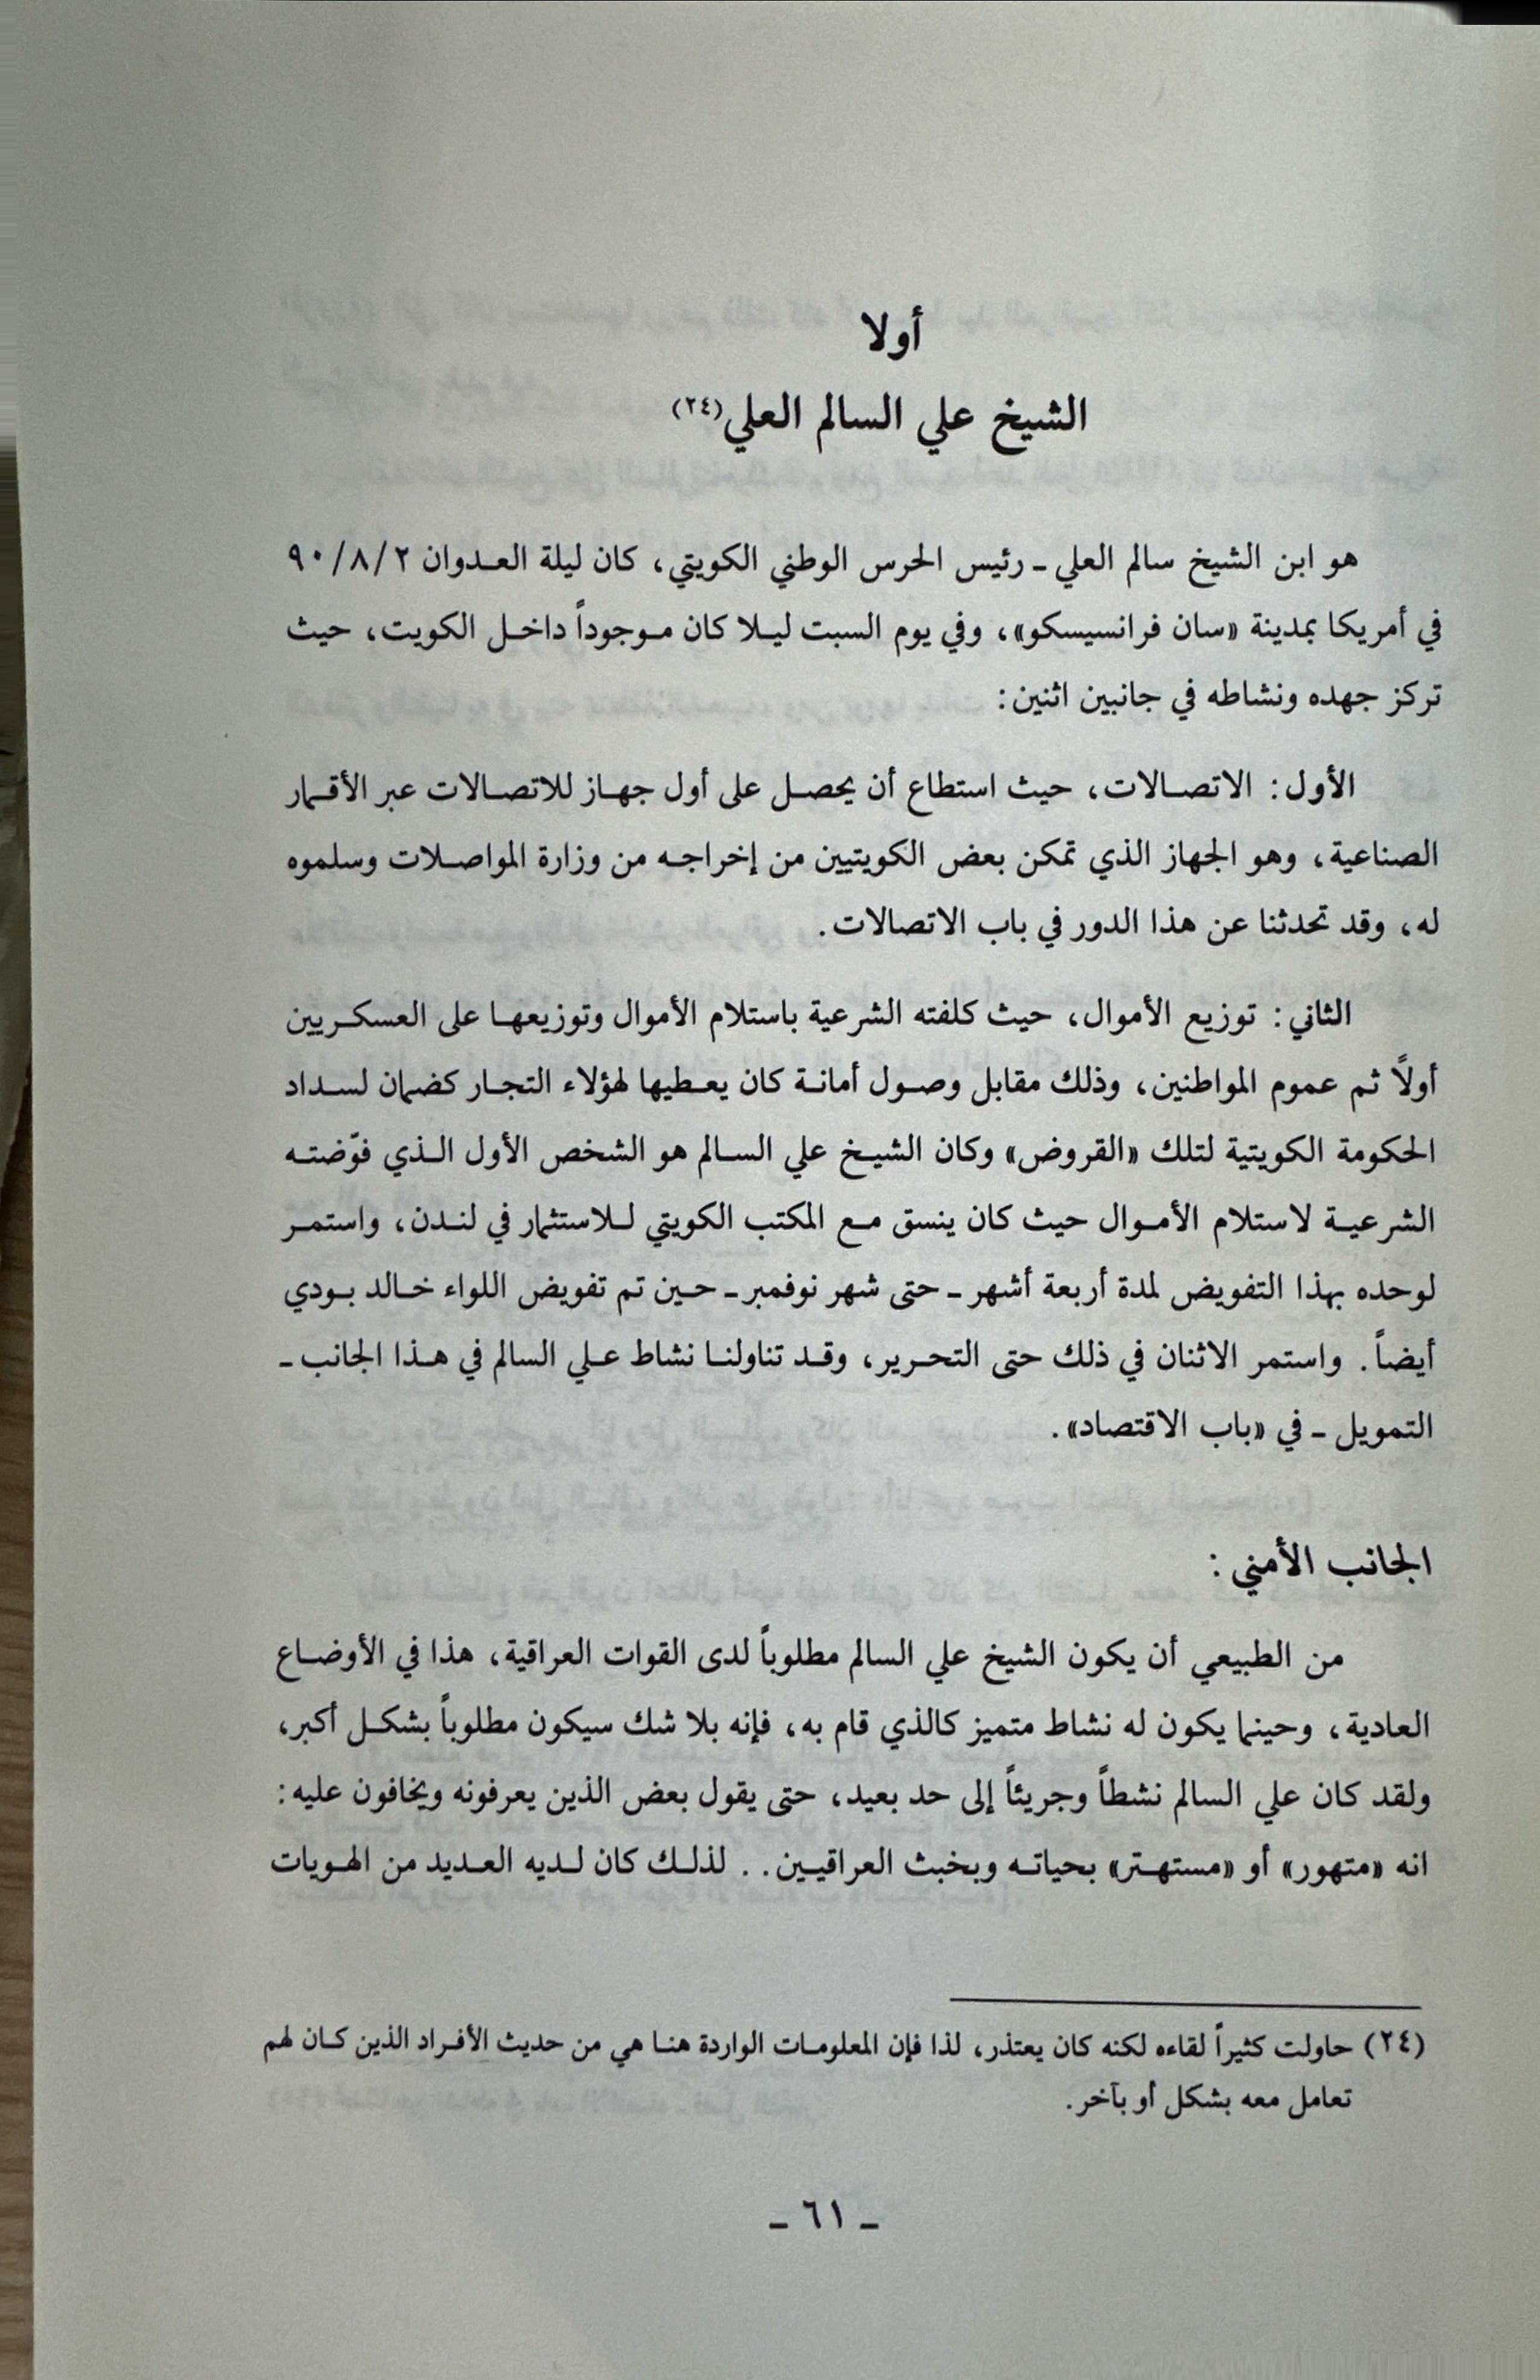 أولا
الشيخ علي السالم العلي(٢٤)
هو ابن الشيخ سالم العلي ـ رئيس الحرس الوطني الكويتي، كان ليلة العدوان ٩٠/٨/٢
في أمريكا بمدينة «سان فرانسيسكو»، وفي يوم السبت ليلا كان موجوداً داخل الكويت، حيث
تركز جهده ونشاطه في جانبين اثنين:
الأول: الاتصالات، حيث استطاع أن يحصل على أول جهاز للاتصالات عبر الأقمار
الصناعية، وهو الجهاز الذي تمكن بعض الكويتيين من إخراجه من وزارة المواصلات وسلموه
له، وقد تحدثنا عن هذا الدور في باب الاتصالات.
الثاني: توزيع الأموال، حيث كلفته الشرعية باستلام الأموال وتوزيعها على العسكريين
أولاً ثم عموم المواطنين، وذلك مقابل وصول أمانة كان يعطيها لهؤلاء التجار كضمان لسداد
الحكومة الكويتية لتلك «القروض» وكان الشيخ علي السالم هو الشخص الأول الذي فوّضته
الشرعية لاستلام الأموال حيث كان ينسق مع المكتب الكويتي للاستثمار في لندن، واستمر
لوحده بهذا التفويض لمدة أربعة أشهر ـ حتى شهر نوفمبر ـ حين تم تفويض اللواء خالد بودي
أيضاً. واستمر الاثنان في ذلك حتى التحرير، وقد تناولنا نشاط علي السالم في هذا الجانب ـ
التمويل ـ في «باب الاقتصاد».
الجانب الأمني:
من الطبيعي أن يكون الشيخ علي السالم مطلوباً لدى القوات العراقية، هذا في الأوضاع
العادية، وحينما يكون له نشاط متميز كالذي قام به، فإنه بلا شك سيكون مطلوباً بشكل أكبر،
ولقد كان علي السالم نشطاً وجريئاً إلى حد بعيد، حتى يقول بعض الذين يعرفونه ويخافون عليه:
انه «متهور» أو «مستهتر» بحياته وبخبث العراقيين.. لذلك كان لديه العديد من الهويات
(٢٤) حاولت كثيراً لقاءه لكنه كان يعتذر، لذا فإن المعلومات الواردة هنا هي من حديث الأفراد الذين كان لهم
تعامل معه بشكل أو بآخر.
ـ ٦١ ـ